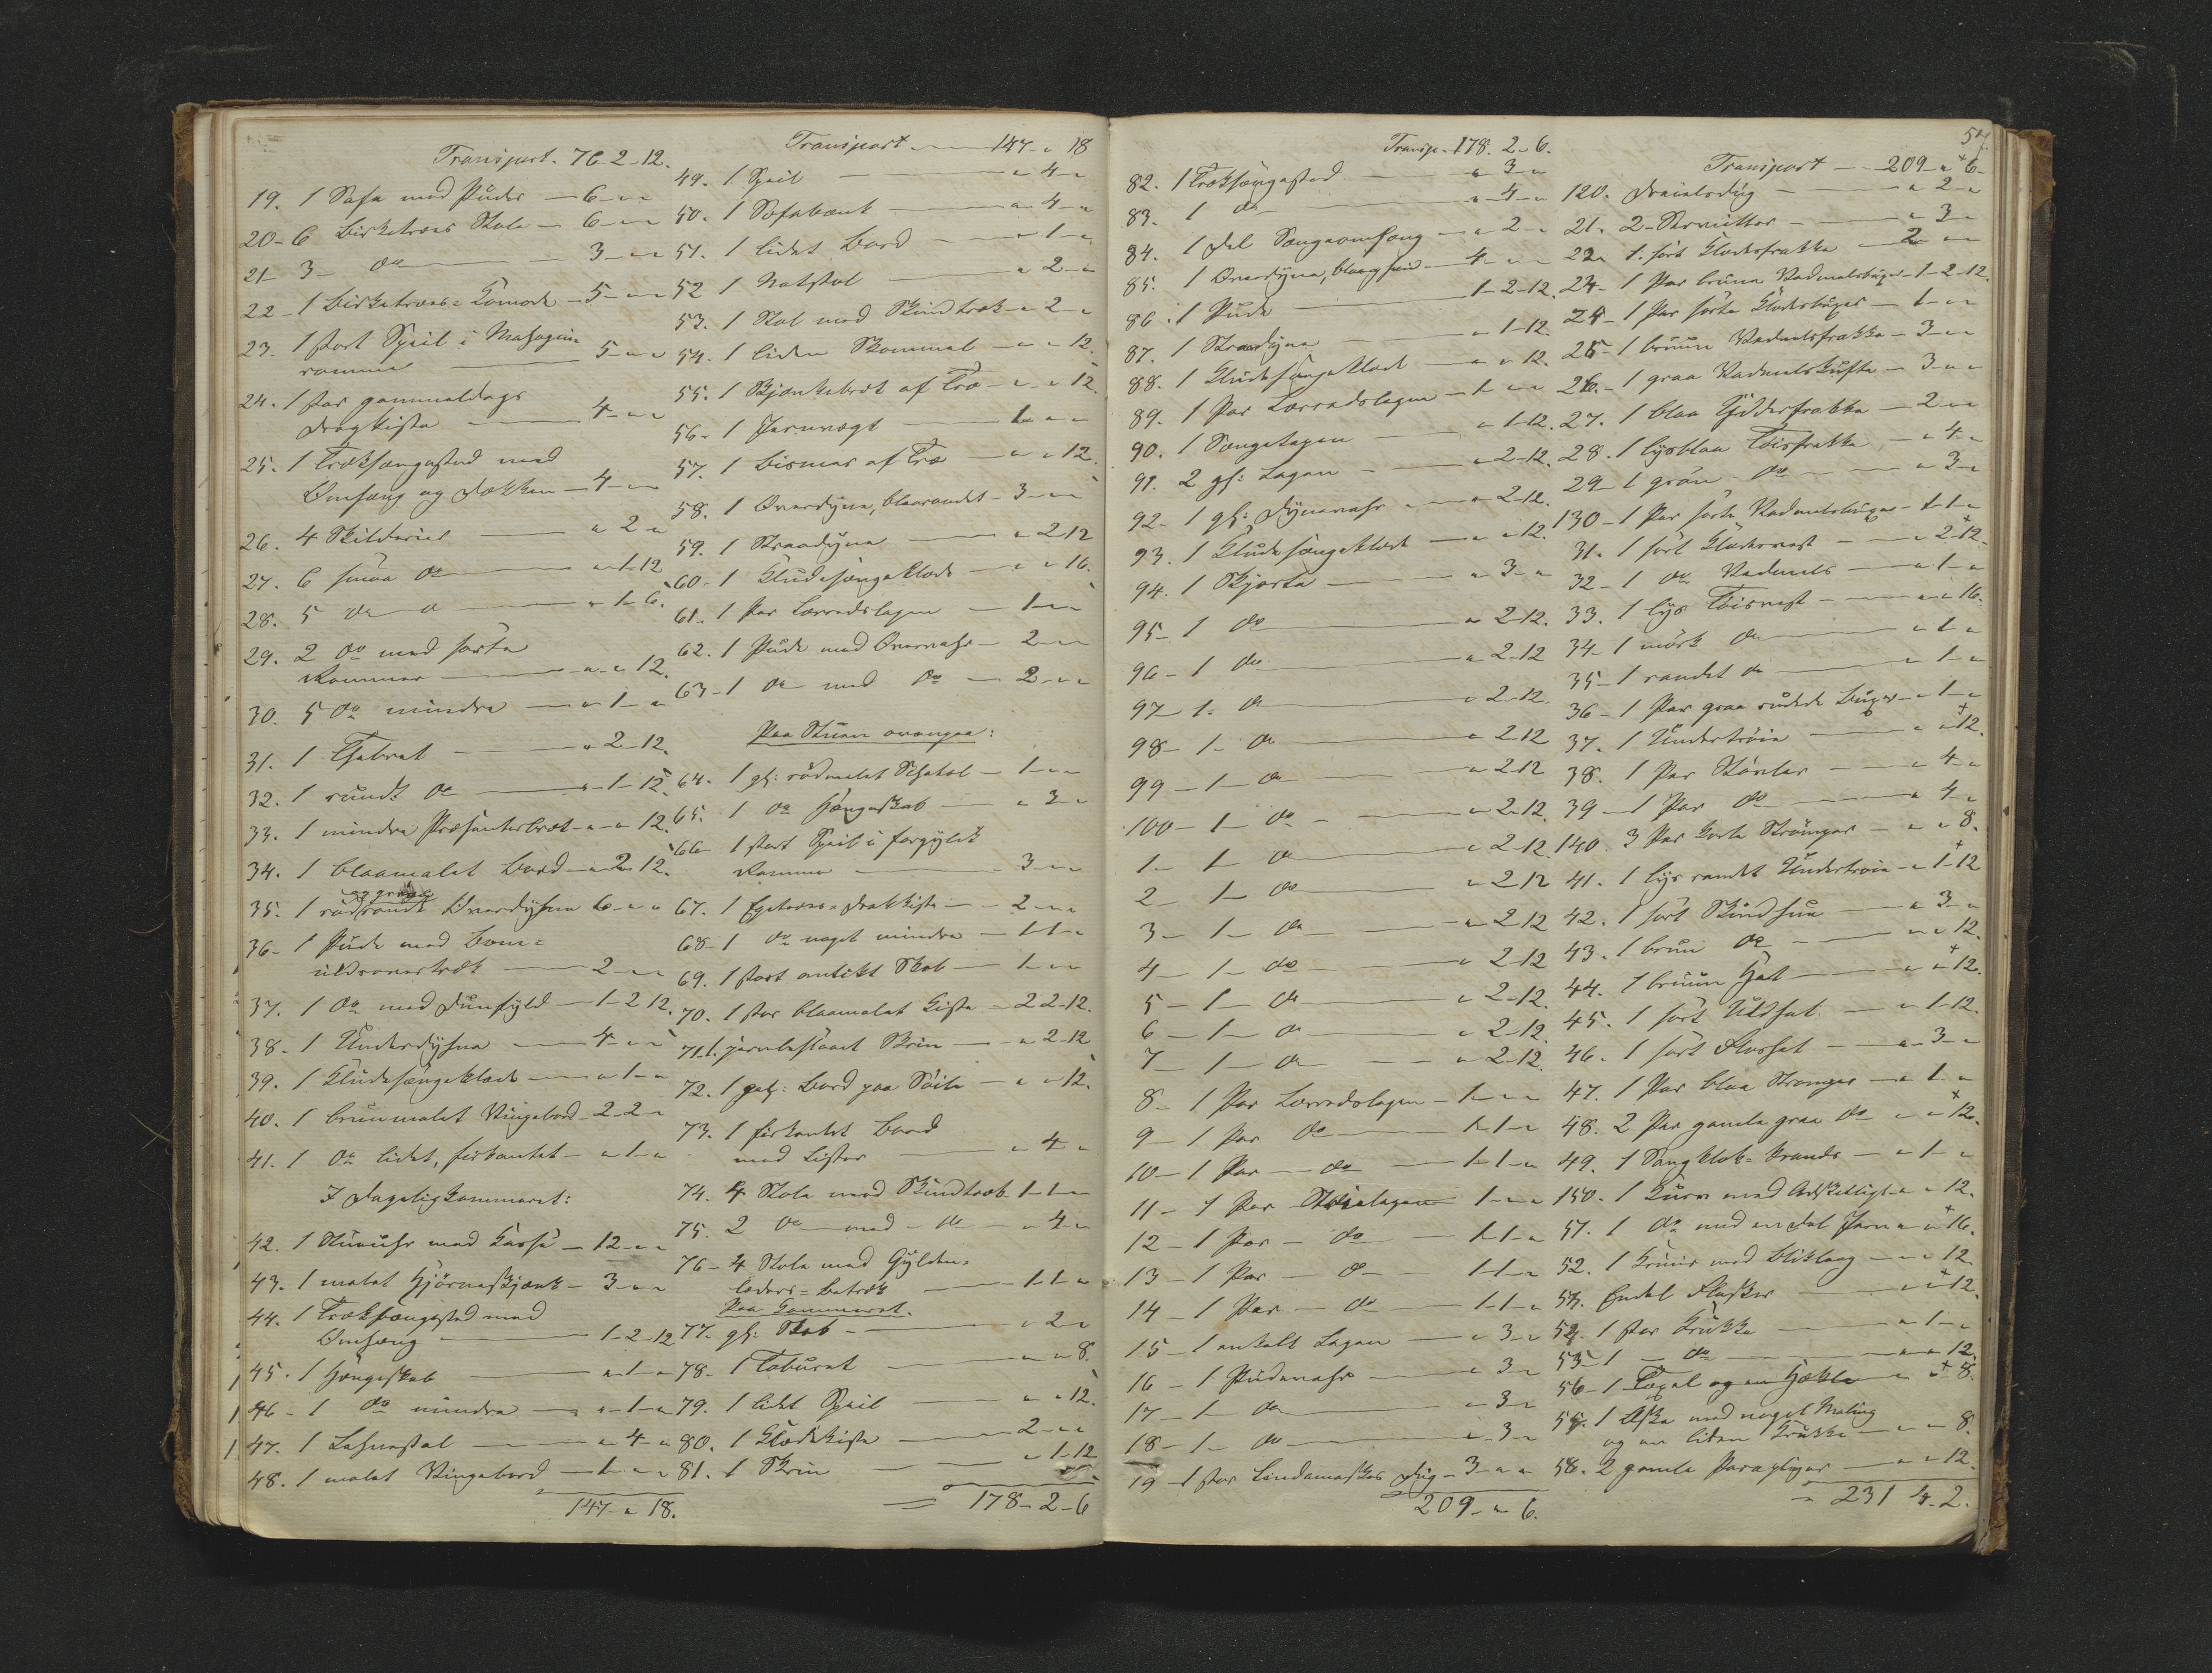 Transport. 76-2-12.
19. 1 Sofa med Puder — 6 - " - "
20 - 6 Birketræes Stole — 6 - " - "
21 - 3 - do — 3 - " - "
22 - 1 Birketræes = Komode — 5 - " - "
23. 1 stort Speil i Mahogni
ramme — 5 - " - "
24. 1 stor gammeldags
Dragkiste — 4 - " - "
25. 1 Træksengested med
Omhæng og Dækken — 4 - " - "
26. 4 Skilderier — " 2 - "
27. 6 smaa do — " - 1 - 12
28. 5 do — " 1 - 6.
29. 2 do med sorte
Rammer — " - " 12.
30. 5 do mindre — " 1 - "
31. 1 Thebret — " 2 - 12.
32. 1 rundt do — " - 1 - 12.
33. 1 mindre Præsenterbret — " - " 12.
34. 1 blaamalet Bord — " 2 - 12.
og grøn
35. 1 rødrandt Overdyhne 6 - " - "
36 - 1 Pude med Bom =
uldsovertræk — 2 - " - "
37. 1 do med Dunfyld — 1 - 2 12.
38 - 1 Underdyhne — 4 - " - "
39. 1 Kludesengeklæde — " 1 - "
40. 1 brunmalet Vingebord - 2 - 2 - "
41. 1 do lidet, firkantet — " 1 - "
I Dagligkammeret:
42. 1 Stueuhr med Kasse — 12 - " - "
43. 1 malet Hjørneskjænk — 3 - " - "
44. 1 Træksengested med
Omhæng — 1 - 2 - 12
45. 1 Hængeskab — " 1 - "
46 - 1 do mindre — " - 1 - "
47. 1 Lehnestol — " 4 - "
48. 1 malet Vingebord — 1 - " - "
147 - " 18.
Transport — 147 - " 18
49. 1 Speil — " 4 - "
50. 1 Sofabænk — " 4 - "
51. 1 lidet Bord — " 1 - "
52 1 Natstol — " 2 - "
53. 1 Stol med Skindtræk — " 2 - "
54. 1 liden Skammel — " - " 12.
55. 1 Skjænkebret af Træ — " - " 12
56 - 1 Jernvægt — 1 - " - "
57. 1 Bismer af Træ — " - " 12.
58. 1 Overdyne, blaarandet — 3 - " - "
59. 1 Straadyne — " 2 - 12
60 - 1 Kludesengeklæde — " - " 16.
61. 1 Par Lærredslagen — 1 - " - "
62. 1 Pude med Overvahr — 2 - " - "
63 - 1 do med do — 2 - " - "
Paa Stuen ovenpaa:
64. 1 gl: rødmalet Schatol — 1 - " - "
65. 1 do Hængeskab — " 3 - "
66 1 stort Speil i forgyldt
Ramme — 3 - " - "
67. 1 Egetræes = Drakkiste — 2 - " - "
68 - 1 do noget mindre — 1 - 1 - "
69. 1 stort antikt Skab — 1 - " - "
70. 1 stor blaamalet Kiste — 2 2 - 12.
71. 1 jernbeslaaet Skrin — " 2 - 12
72. 1 gl: Bord paa Søile — " - " 12.
73. 1 firkantet Bord
med Lister — " 4 - "
74. 4 Stole med Skindtræk 1 - 1 - "
75. 2 do med do — " 4 - "
76 - 4 Stole med Gylden =
læders = Betræk — 1 - 1 - "
Paa Kammeret.
77. gl: Skab — " 2 - "
78. 1 Taburet — " - " 8.
79. 1 lidet Speil — " - " 12.
80. 1 Klædekiste — 2 - " - "
81. 1 Skrin — " 1 - 12
= 178 - 2 - 6
Transp. 178. 2 - 6.
82. 1 Træksengested — " 3 - "
83. 1 do — " - 4 - "
84. 1 Del Sengeomhæng — " 2 - "
85. 1 Overdyne, — 4 - " - "
86. 1 Pude — 1 - 2 - 12.
87. 1 Straadyne — " 1 - 12.
88. 1 Kludesengeklæde — " - " 12.
89. 1 Par Lærredslagen — 1 - " - "
90. 1 Sengelagen — " 1 - 12.
91. 2 gl: Lagen — " 2 - 12.
92 - 1 gl: Dynevahr — " 2 - 12.
93. 1 Kludesengeklæde — " - " 12.
94. 1 Skjorte — " 3 - "
95 - 1 do — " 2 - 12.
96 - 1 do — " 2 - 12
97 1 - do — " 2 - 12.
98 - 1 - do — " 2 - 12
99 - 1 - do — " 2 - 12
100 - 1 - do — " 2 - 12.
1 - 1 - do — " 2 - 12.
2 - 1 - do — " 2 - 12
3 - 1 - do — " 2 - 12
4 - 1 - do — " 2 - 12
5 - 1 - do — " 2 - 12.
6 - 1 - do — " 2 - 12.
7 - 1 - do — " 2 - 12.
8 - 1 Par Lærredslagen — 1 - " - "
9 - 1 Par do — 1 - 1 - "
10 - 1 Par — do — 1 - 1 - "
11 - 1 Par Strielagen — 1 - " - "
12 - 1 Par — do — 1 - 1 - "
13 - 1 Par — do — 1 - 1 - "
14 - 1 Par — do — 1 - 1 - "
15 - 1 enkelt Lagen — " 3 - "
16 - 1 Pudevahr — " 3 - "
17 - 1 - do — " 3 - "
18 - 1 - do — " 3 - "
19 - 1 stor Lindamaskes Dug - 3 - " - "
209 - " 6.
54.
Transport — 209 - " 6 -
120. Dreielsdug — " 2 - "
21. 2 - Servietter — " 3 - "
22 1. sort Klædesfrakke — 2 - " - "
23 - 1 Par brune Vadmelsbuxer - 1 - 2 - 12.
24 - 1 Par sorte Klædesbuxer — 1 - " - "
25 - 1 bruun Vadmelsfrakke - 3 - " - "
26. - 1 graa Vadmelskufte — 3 - " - "
27. 1 blaa frakke — 2 - " - "
28. 1 lysblaa Tøisfrakke — " 4 - "
29 - 1 grøn do — " 3 - "
130 - 1 Par sorte Vadmelsbuxer — 1 - 1 - "
31. 1 sort Klædesvest — " 2 - 12 -
32 - 1 do Vadmels — " 1 - "
33. 1 lys Tøisvest — " - " 16.
34 - 1 mørk do — " 1 - "
35 - 1 randet do — " 1 - "
36 - 1 Par graa rudede Buxer — " 1 - "
37. 1 Undertrøie — " " 12.
38. 1 Par Støvler — " 4 - "
39 - 1 Par do — " 4 - "
140. 3 Par korte Strømper — " - " 8.
41. 1 lys randet Undertrøie — " 1 - 12
42. 1 sort Skindhue — " 3 - "
43. 1 brun do — " - " 12.
44. 1 bruun Hat — " - " 12.
45. 1 sort Uldhat — " 1 - 12.
46. 1 sort Floshat — " 3 - "
47. 1 Par blaa Strømper — " 1 - "
48. 2 Par gamle graa do — " - " 12.
49. 1 — " 1 - "
150. 1 Kurv med Adskilligt — " - " 12.
51. 1 do med en Del Jern — " - " 16.
52. 1 med Bliklaag — " - " 12
53. Endel Flasker — " - " 12.
54. 1 stor Krukke — " 1 - "
55 - 1 — do — " - " 12.
56 - 1 og en Hækle — " - " 8.
57. 1 Æske med noget Maling
og en liden Krukke — " - " 8.
58. 2 gamle Paraplyer — " - " 12.
= 231 4 - 2.